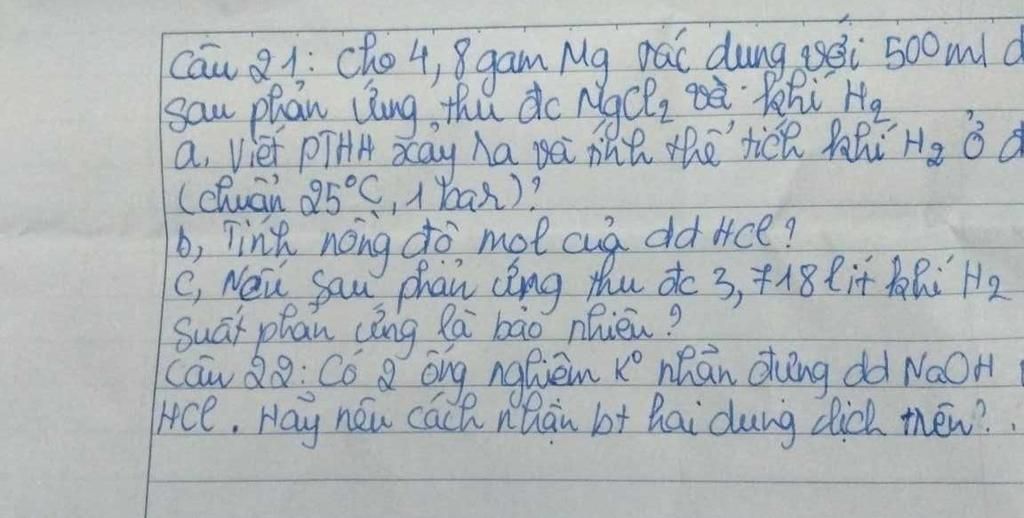 Câu 21: Cho 4,8 gam Mg tác dụng với 500 ml d
sau phản ứng thu đc MgCl₂ và khí H₂
a, Viết PTHH xảy ra và tính thể tích khí H₂ ở đ
(chuẩn 25°C, 1 bar)?
b, Tính nồng độ mol của dd HCl?
C, Nếu sau phản ứng thu đc 3,718 lít khí H₂
suất phản ứng là bao nhiêu?
Câu 22: Có 2 ống nghiệm K° nhãn đựng dd NaOH
HCl. Hãy nêu cách nhận bt hai dung dịch trên?.